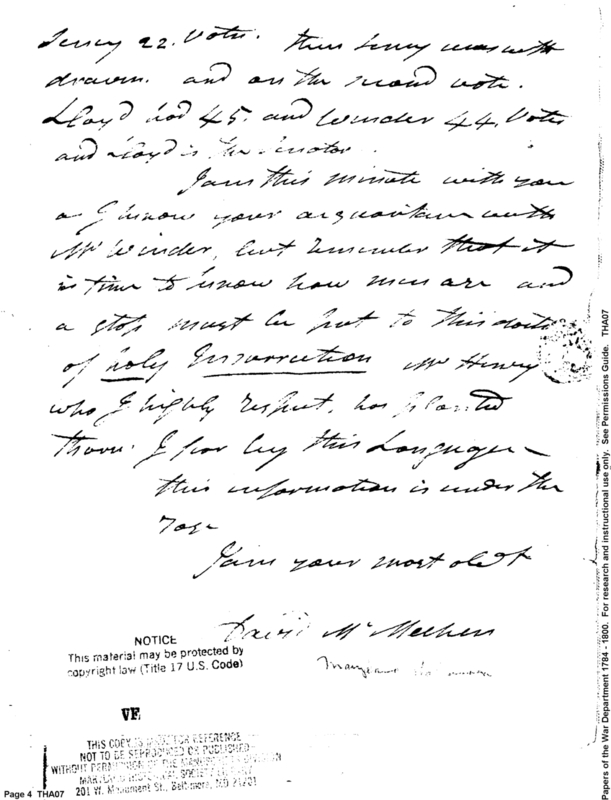 22. Votes. then was with
drawn. and on the second vote.
Lloyd had 45. and Winder 44. Votes
and Lloyd is the Senator.
I am this minute with you
as I know your acquaintance with
Mr Winder, but remember that it
is time to know how men are and
a stop must be put to this
of holy Insurrection Mr Henry
who I highly respect, has planted
thorn. I by this Language —
this information is under the
rose
I am your most obedt
David McMechen
NOTICE
This material may be protected by
copyright law (Title 17 U.S. Code)
VF
THIS COPY IS FOR REFERENCE
NOT TO BE REPRODUCED OR PUBLISHED
WITHOUT PERMISSION OF THE MANUSCRIPTS DIVISION
MARYLAND HISTORICAL SOCIETY
201 W. Monument St., Baltimore, MD 21201
Page 4 THA07
Papers of the War Department 1784 - 1800. For research and instructional use only. See Permissions Guide. THA07